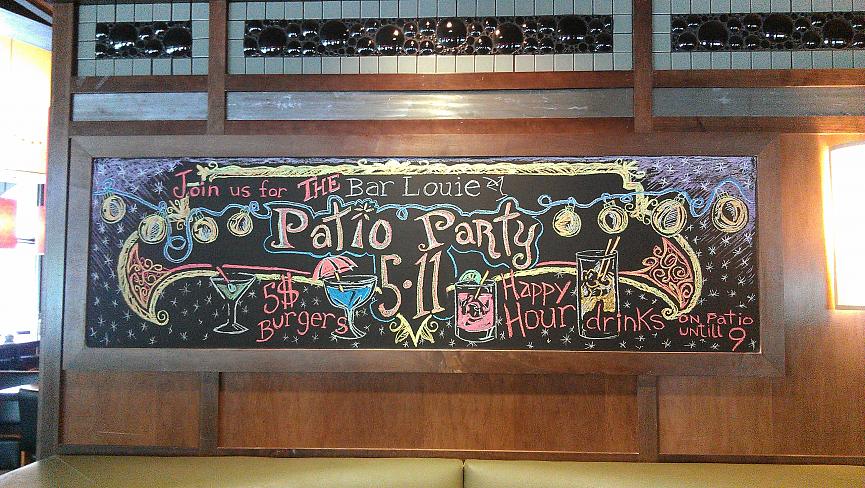 Join us for THE Bar Louie
Patio Party
5-11
5$
Burgers
Happy
Hour drinks
on Patio
untill
9